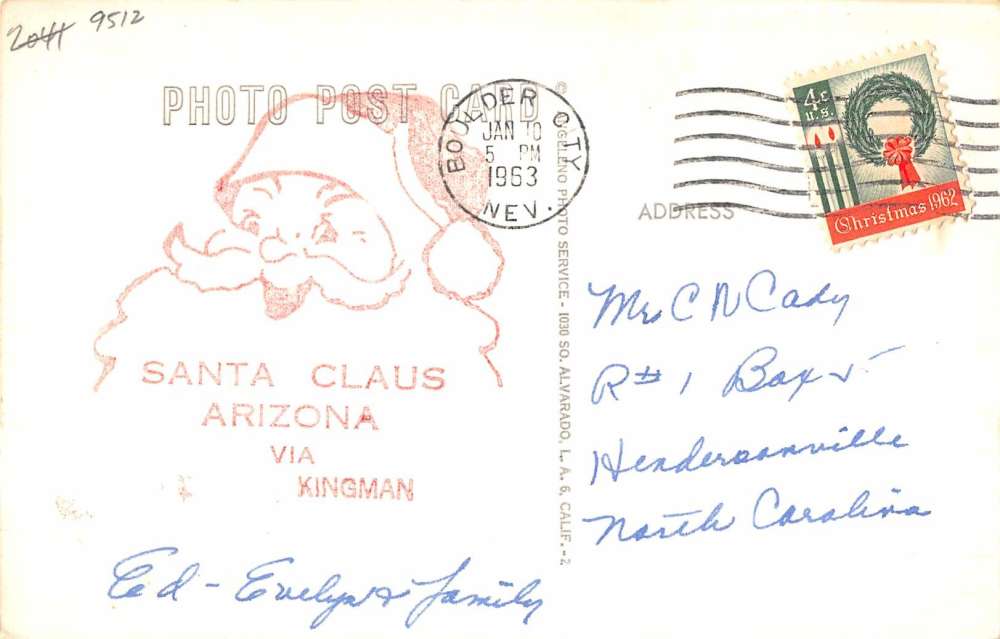 2044 9512
PHOTO POST CARD
BOULDER CITY
JAN 10
5 PM
1963
NEV.
4¢
U.S.
Christmas 1962
SANTA CLAUS
ARIZONA
VIA
KINGMAN
Ed - Evelyn & family
PHOTO SERVICE - 1030 SO. ALVARADO, L. A. 6, CALIF. - 2
ADDRESS
C N Cady
R#1 Box 5
Hendersonville
North Carolina